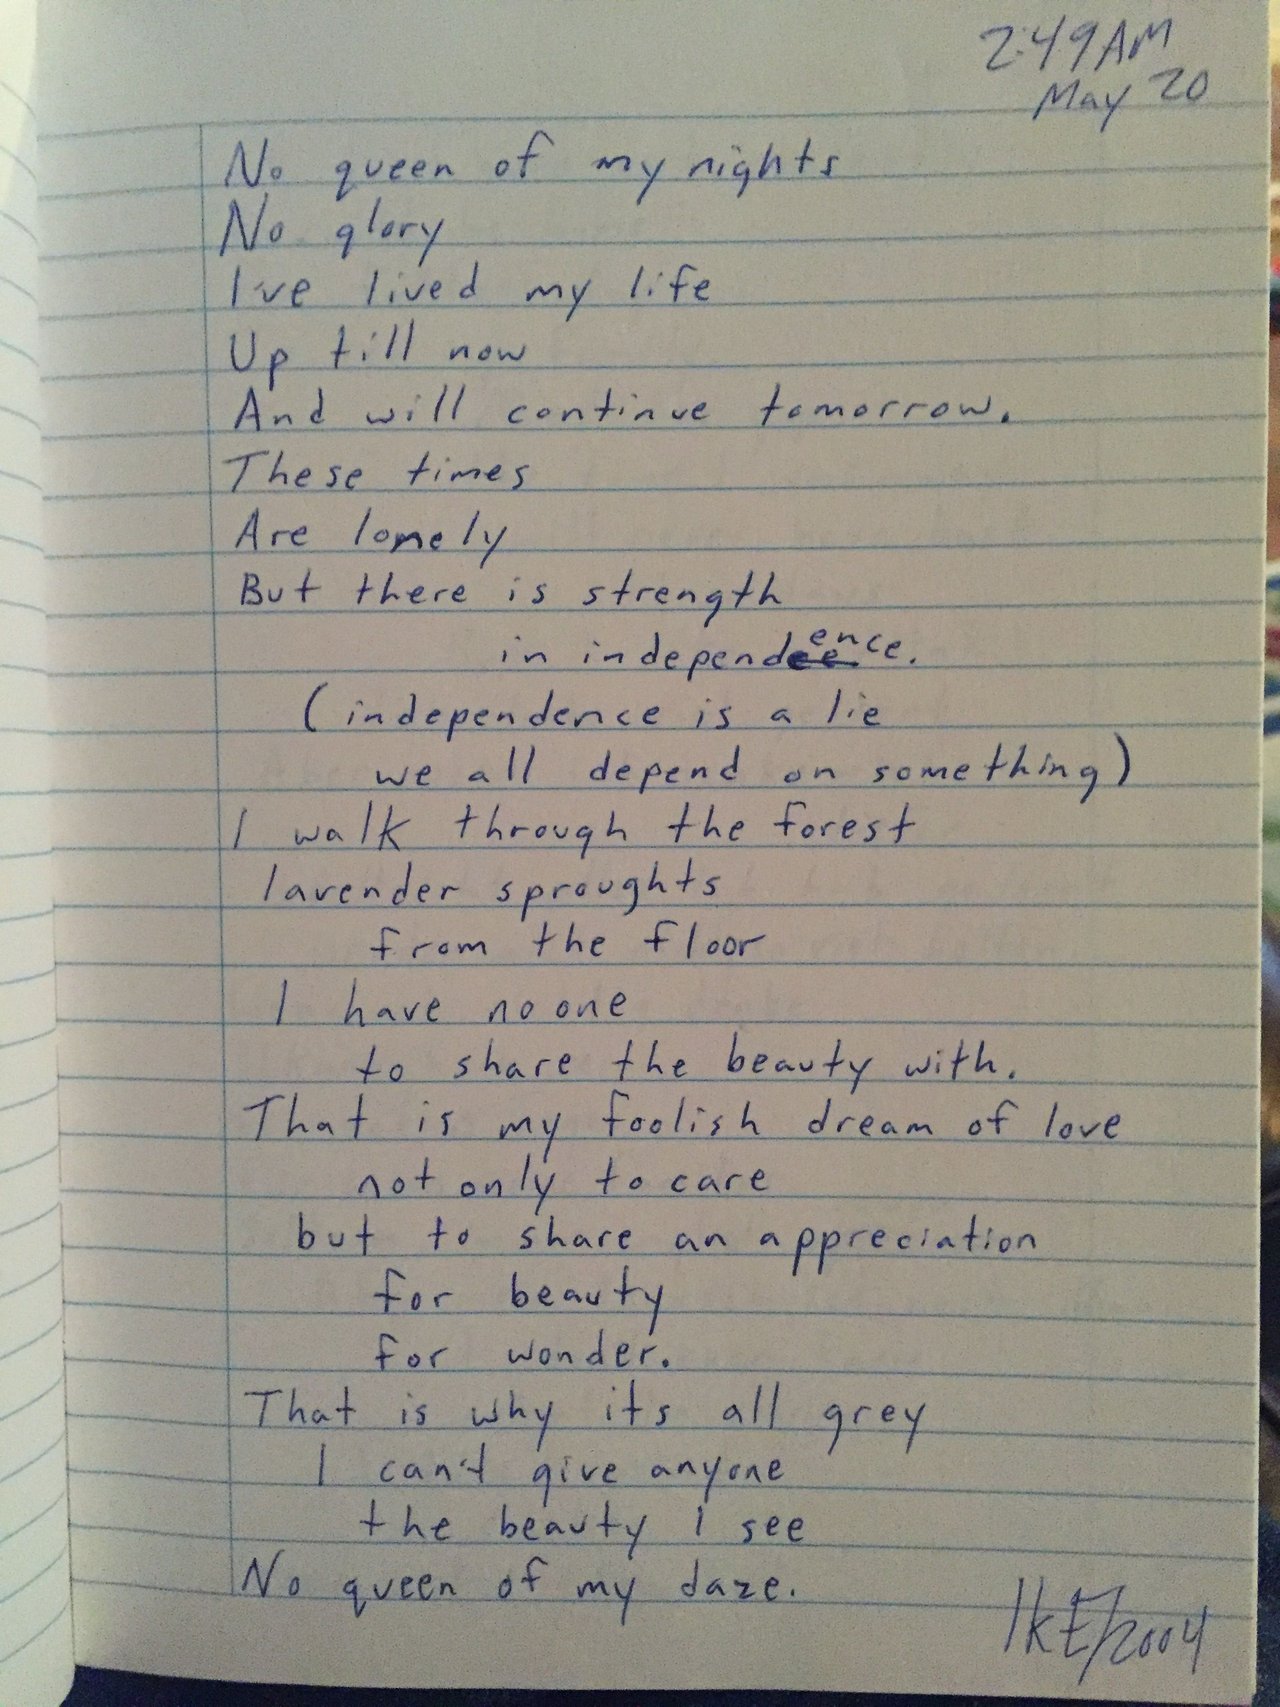 2:49AM
May 20
No queen of my nights
No glory
I've lived my life
Up till now
And will continue tomorrow.
These times
Are lonely
But there is strength
in independence.
(independence is a lie
we all depend on something)
I walk through the forest
lavender sproughts
from the floor
I have no one
to share the beauty with.
That is my foolish dream of love
not only to care
but to share an appreciation
for beauty
for wonder.
That is why its all grey
I can't give anyone
the beauty I see
No queen of my daze.
IKE/2004